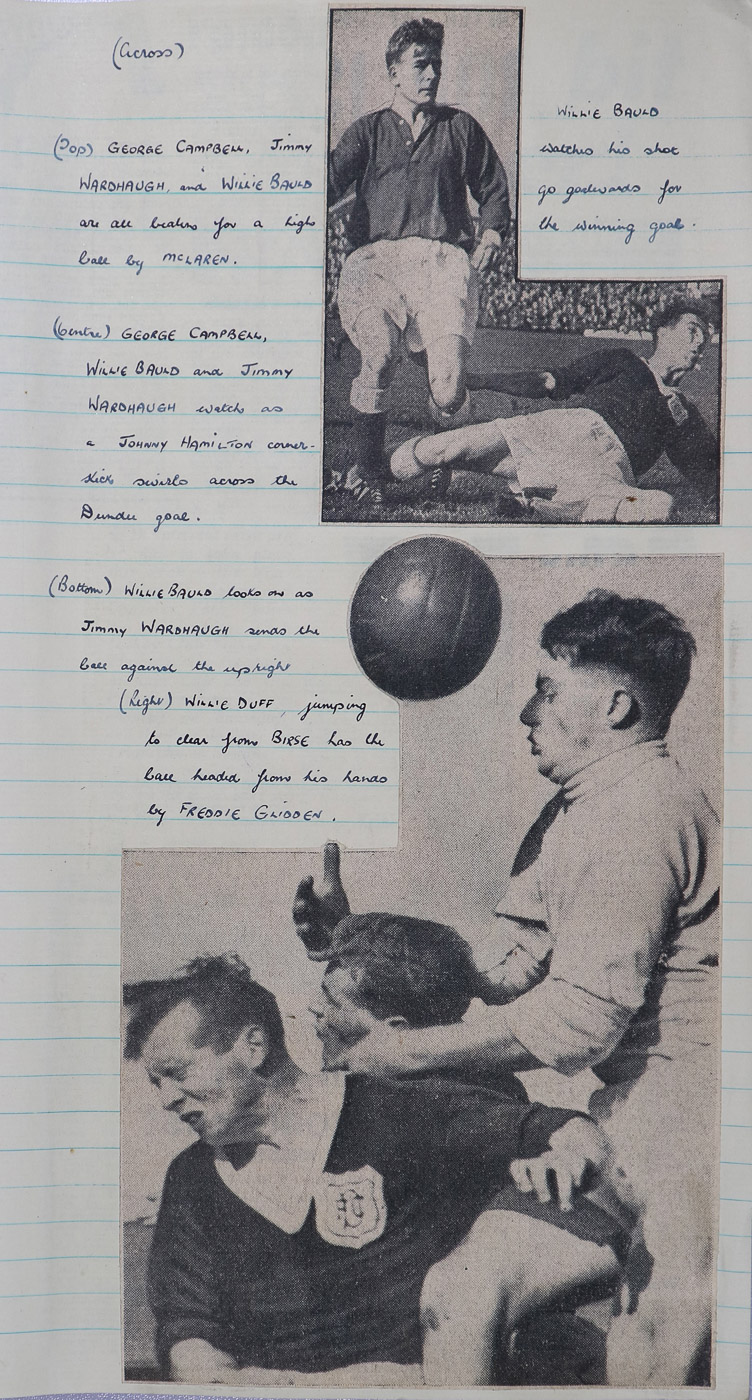 (Across)
(Top) GEORGE CAMPBELL, Jimmy
WARDHAUGH, and WILLIE BAULD
are all beaten for a high
ball by MCLAREN.
(Centre) GEORGE CAMPBELL,
WILLIE BAULD and Jimmy
WARDHAUGH watch as
a JOHNNY HAMILTON corner-
kick swirls across the
Dundee goal.
(Bottom) WILLIE BAULD looks on as
Jimmy WARDHAUGH sends the
ball against the upright
(Right) WILLIE DUFF, jumping
to clear from BIRSE has the
ball headed from his hands
by FREDDIE GLIDDEN.
WILLIE BAULD
watches his shot
go goalwards for
the winning goal.